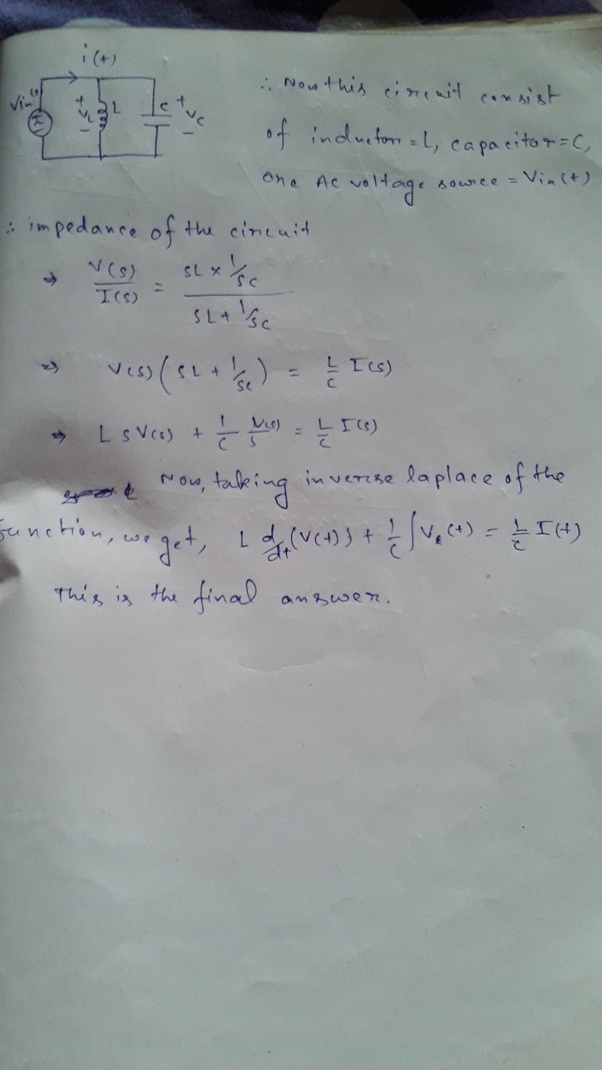 i(t)
Vin(t)
+ VL - L
C + Vc -
∴ Now this circuit consist
of inductor = L, capacitor = C,
one AC voltage source = Vin(t)
∴ impedance of the circuit
⇒ V(s)/I(s) = (sL × 1/sC)/(sL + 1/sC)
⇒ V(s) (sL + 1/sC) = L/C I(s)
⇒ L s V(s) + 1/C V(s)/s = L/C I(s)
Now, taking inverse laplace of the
function, we get, L d/dt (V(t)) + 1/C ∫ V(t) = L/C I(t)
This is the final answer.